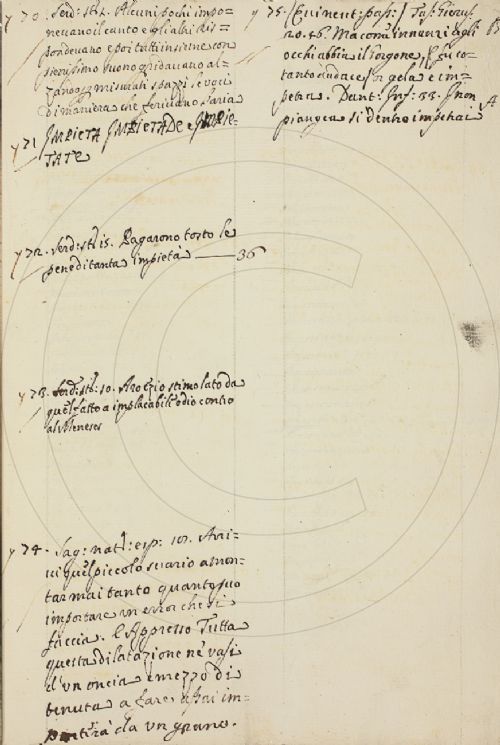 y 70. Serd: st: 4. Alcuni pochi impo=
neuano il canto e gli altri ris=
pondeuano e poi tutti insieme con
fierissimo suono gridauano al=
zando smisurati spazzi le voci
di maniera che feriuano l'aria
y 71 IMPIETÀ IMPIETADE e IMPIE=
TATE
y 72. Serd: st: 15. Pagarono tosto le
pene di tanta impietà —— 36
y 73. Serd: st: 10. stimolato da
quel fatto a implacabil'odio contro
al Meneses
y 74. Sag: nat: esp: 101. Arri=
ui quel piccolo suario a mon=
tar mai tanto quanto può
importare un error che si
faccia. E Appresso Tutta
questa dilatazione ne' vasi
d'un oncia e mezzo di
tenuta a fare assai im=
portirà da un grano.
y 75. [Eminent: pass:] Tass: Gierus:
20. 56. Ma come innanzi agli
occhi abbia il Gorgone E fu co=
tanto audace or gela e im=
petra. Dant: Inf: 33. Jo non
piangea si dentro impetrai